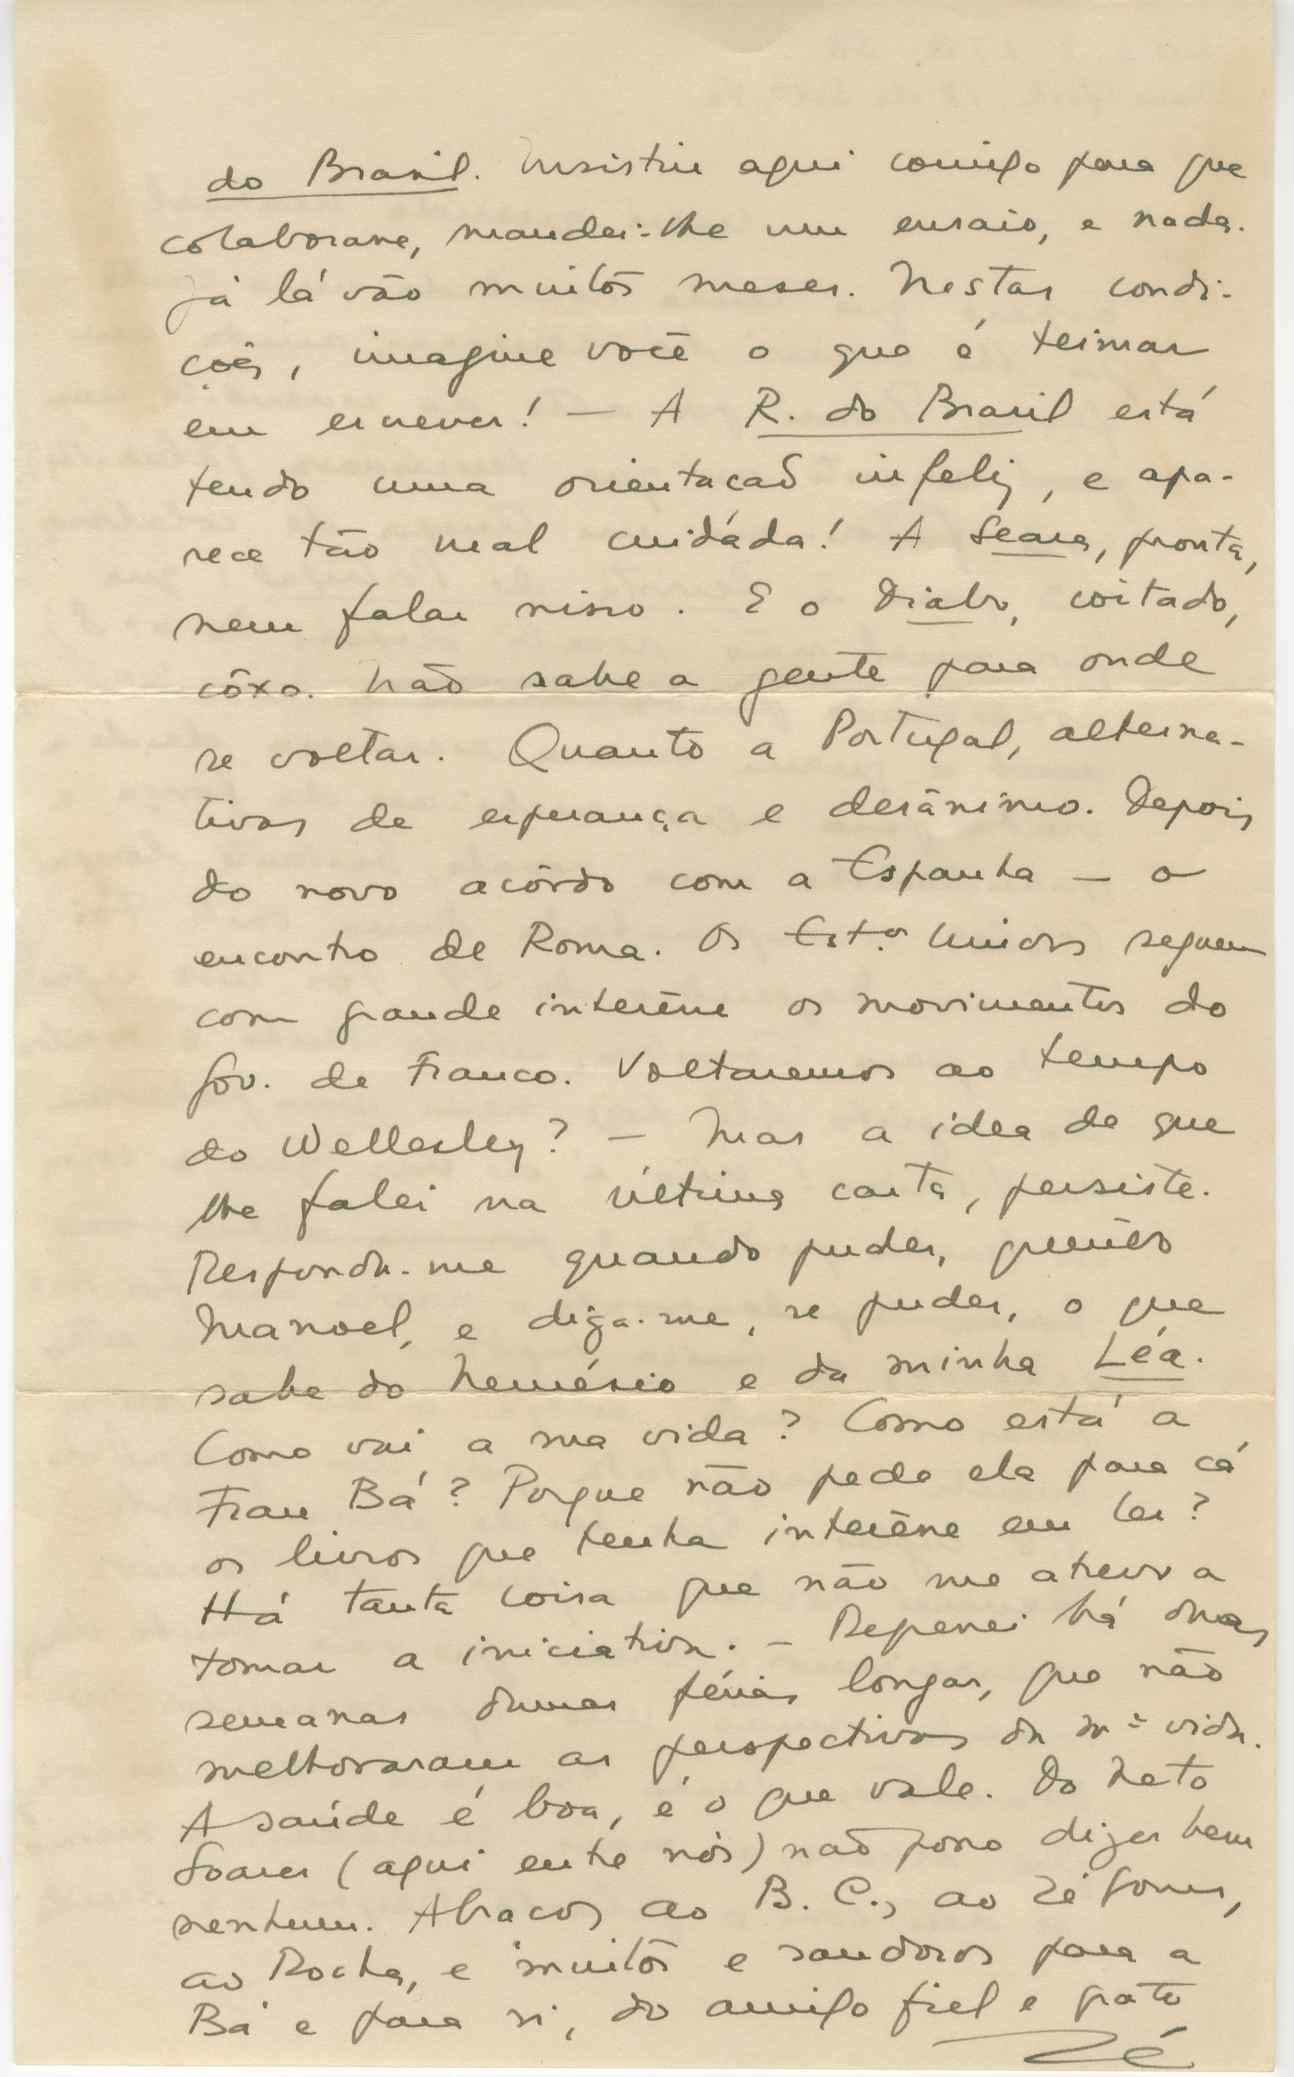 do Brasil. Insistiu aqui comigo para que
colaborasse, mandei-lhe um ensaio, e nada.
Já lá vão muitos meses. Nestas condi-
ções, imagine você o que é teimar
em escrever! — A R. do Brasil está
tendo uma orientação infeliz, e apa-
rece tão mal cuidáda! A Seara, pronta,
nem falar nisso. E o Diabo, coitado,
côxo. Não sabe a gente para onde
se voltar. Quanto a Portugal, alterna-
tivas de esperança e desânimo. Depois
do novo acôrdo com a Espanha — o
encontro de Roma. Os Est.os Unidos seguem
com grande interêsse os movimentos do
Gov. de Franco. Voltaremos ao tempo
do Wellesley? — Mas a idea de que
lhe falei na última carta, persiste.
Responda-me quando puder, querido
Manoel, e diga-me, se puder, o que
sabe do Nemésio e da minha Léa.
Como vai a sua vida? Como está a
Frau Bá? Porque não pede ela para cá
os livros que tenha interêsse em ler?
Há tanta coisa que não me atrevo a
tomar a iniciativa. — Regressei há duas
semanas dumas férias longas, que não
melhoraram as perspectivas da m.ª vida.
A saúde é boa, é o que vale. Do Neto
Soares (aqui entre nós) não posso dizer bem
nenhum. Abraços ao B. C., ao Zé Gomes,
ao Rocha, e muitos e saudosos para a
Bá e para si, do amigo fiel e grato
Zé